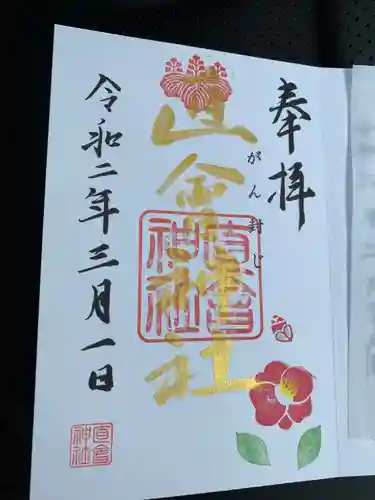 奉拝
がん封じ
直會神社
直會神社
令和二年三月一日
直會神社